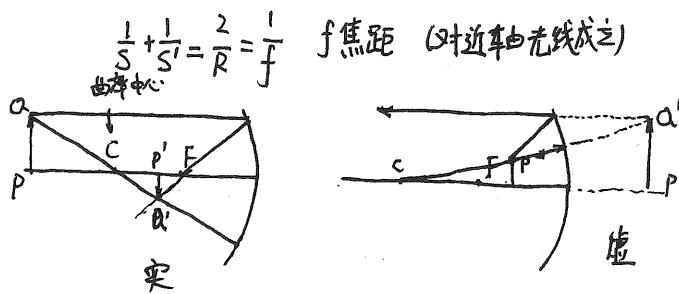 1/S + 1/S' = 2/R = 1/f f焦距 (对近轴光线成立)
曲率中心
Q
C P' F
P
Q'
实
Q'
C F P
P
虚